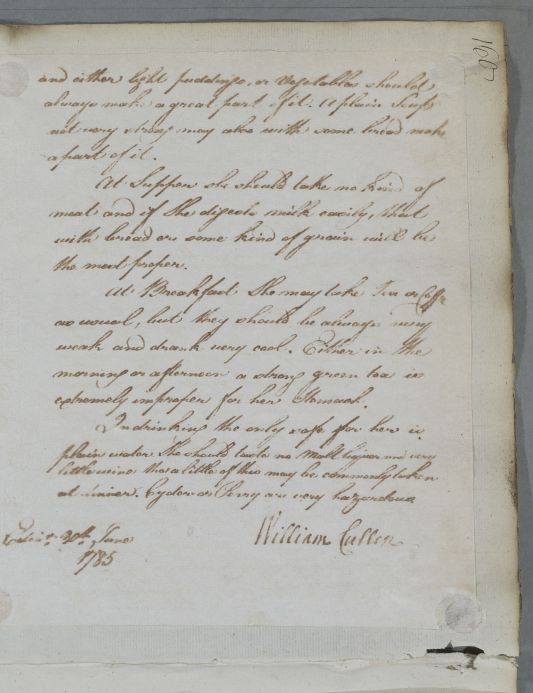 160
and either light puddings, or Vegetables should
always make a great part of it. A plain Soup
not very strong may also with some bread make
a part of it.
At Supper she should take no kind of
meat and if She digests milk easily, that
with bread or some kind of grain will be
the most proper.
At Breakfast She may take Tea or Coffe
as usual, but they should be always very
weak and drank very cool. Either in the
morning or afternoon a strong green tea is
extremely improper for her Stomach.
In drinking the only safe for her is
plain water. She should taste no Malt liquor and very
little wine tho a little of this may be commonly taken
at dinner. Cyder or Perry are very hazardous
William Cullen
30th. June
1785